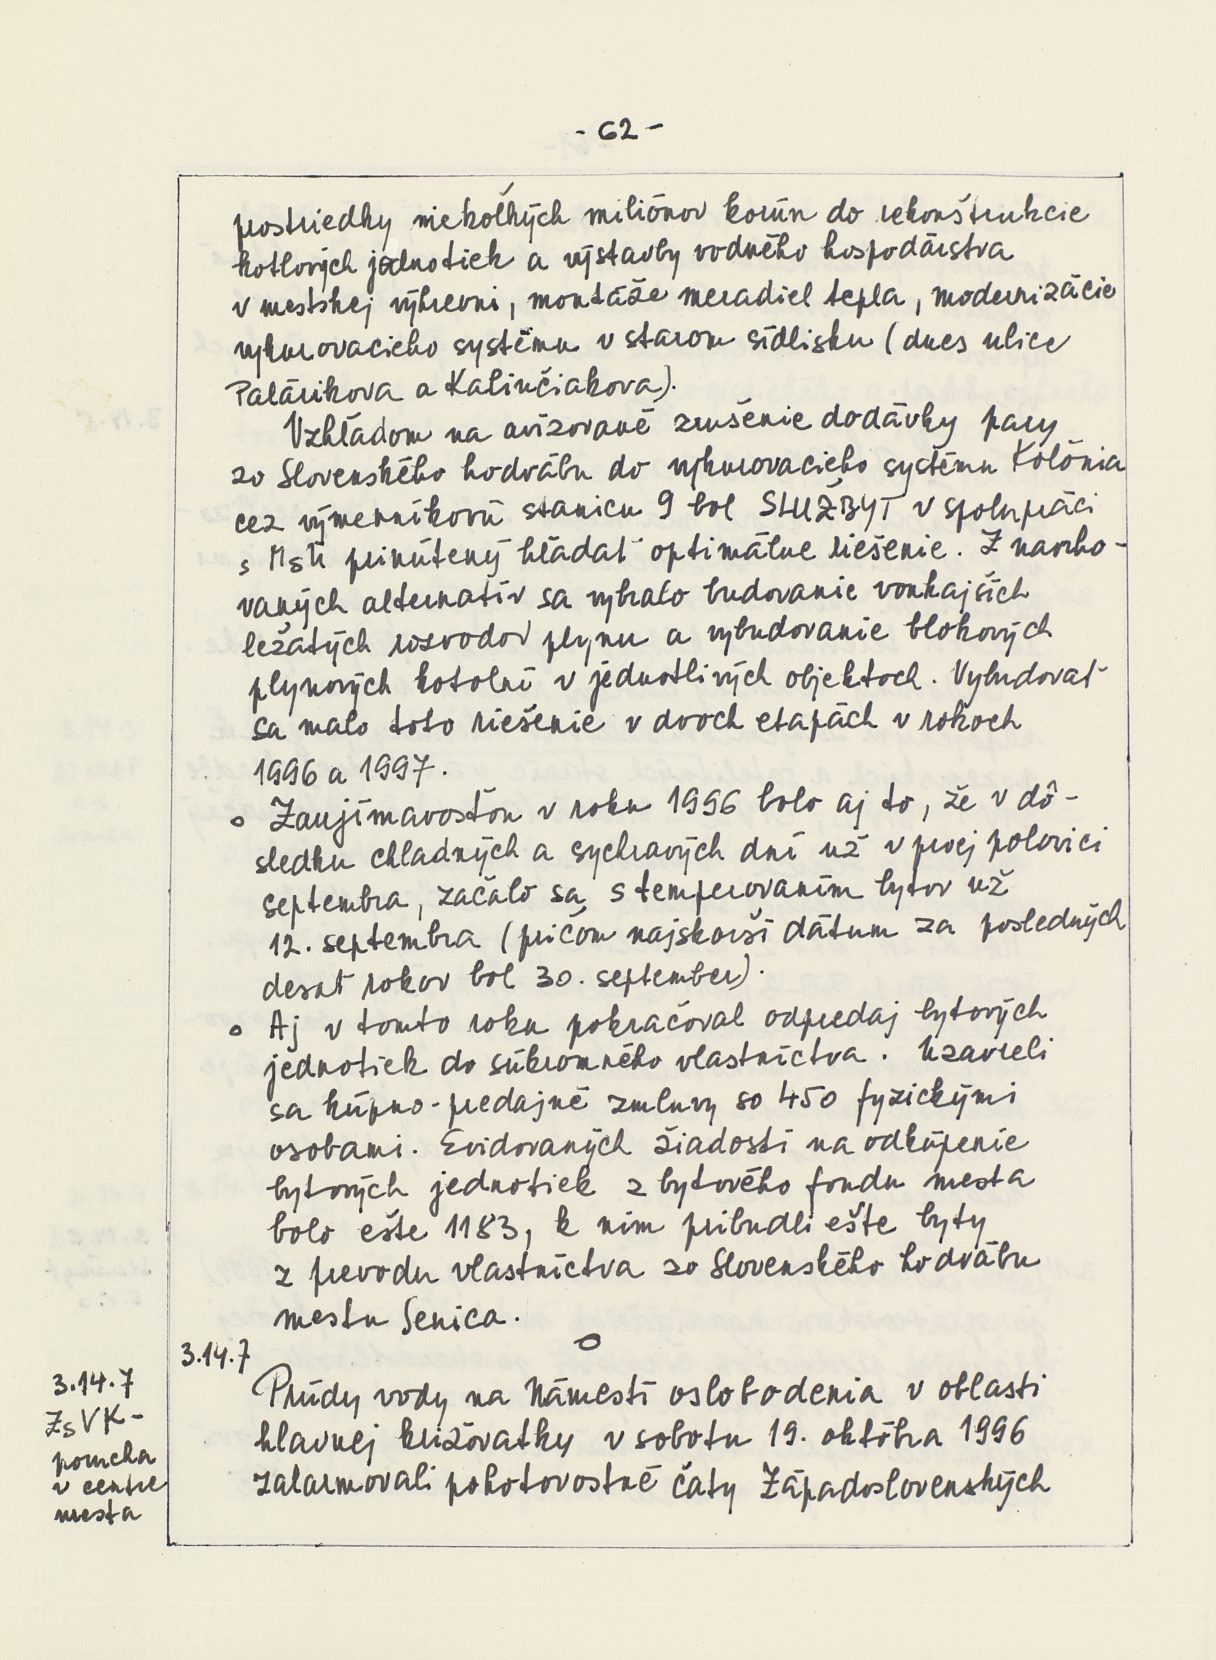 - 62 -
prostriedky niekoľkých miliónov korún do rekonštrukcie
kotlových jednotiek a výstavby vodného hospodárstva
v mestskej výhrevni, montáže meradiel tepla, modernizácie
vykurovacieho systému v starom sídlisku (dnes ulice
Palárikova a Kalinčiakova).
Vzhľadom na avizované zrušenie dodávky pary
zo Slovenského hodvábu do vykurovacieho systému Kolónia
cez výmenníkovú stanicu 9 bol SLUŽBYT v spolupráci
s MsÚ prinútený hľadať optimálne riešenie. Z navrho-
vaných alternatív sa vybralo budovanie vonkajších
ležatých rozvodov plynu a vybudovanie blokových
plynových kotolní v jednotlivých objektoch. Vybudovať
sa malo toto riešenie v dvoch etapách v rokoch
1996 a 1997.
o Zaujímavosťou v roku 1996 bolo aj to, že v dô-
sledku chladných a sychravých dní už v prvej polovici
septembra, začalo sa s temperovaním bytov už
12. septembra (pričom najskorší dátum za posledných
desať rokov bol 30. september).
o Aj v tomto roku pokračoval odpredaj bytových
jednotiek do súkromného vlastníctva. Uzavreli
sa kúpno-predajné zmluvy so 450 fyzickými
osobami. Evidovaných žiadostí na odkúpenie
bytových jednotiek z bytového fondu mesta
bolo ešte 1183, k nim pribudli ešte byty
z prevodu vlastníctva zo Slovenského hodvábu
mestu Senica.
o
3.14.7
3.14.7
ZsVK-
porucha
v centre
mesta
Prúdy vody na Námestí oslobodenia v oblasti
hlavnej križovatky v sobotu 19. októbra 1996
zalarmovali pohotovostné čaty Západoslovenských